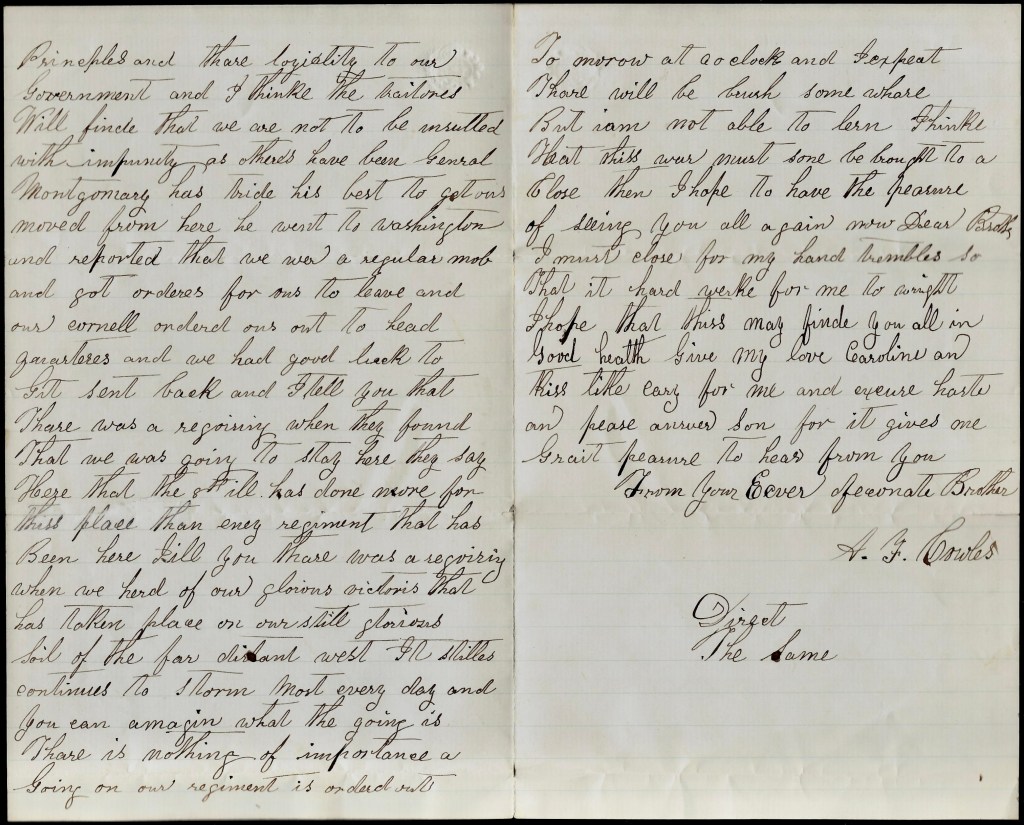 Princples and thare loyiality to our
Government and I thinke the traitores
Will finde that we are not to be insulted
with impunity as others have been Genral
Montgomary has tride his best to get ous
moved from here he went to washington
and reported that we wer a regular mob
and got orderes for ous to leave and
our cornell orderd ous out to head
quarteres and we had good luck to
Git sent back and I tell you that
Thare was a regoising when they found
That we was going to stay here they say
Here that the 8th ill has done more for
thiss place than eney regiment that has
Been here I till you thare was a regoising
when we herd of our glorious victoris that
has taken place on our still glorious
Soil of the far distant west It stilles
continues to storm most every day and
You can amagin what the going is
Thare is nothing of importance a
Going on our regiment is orderd out
To morow at 20 clock and I expeat
Thare will be brush some whare
But iam not able to lern I thinke
That thiss war must sone be brought to a
Close then I hope to have the pearure
of seeing you all again now Dear Broth
I must close for my hand trembles so
That it hard werke for me to wright
I hope that thiss may finde you all in
Good health Give my love Caroline an
Kiss litle cary for me and excure haste
an pease answer son for it gives me
Grait pearure to hear from you
From Your Eever afeconate Brother
A. F. Cowles
Direct
The Same